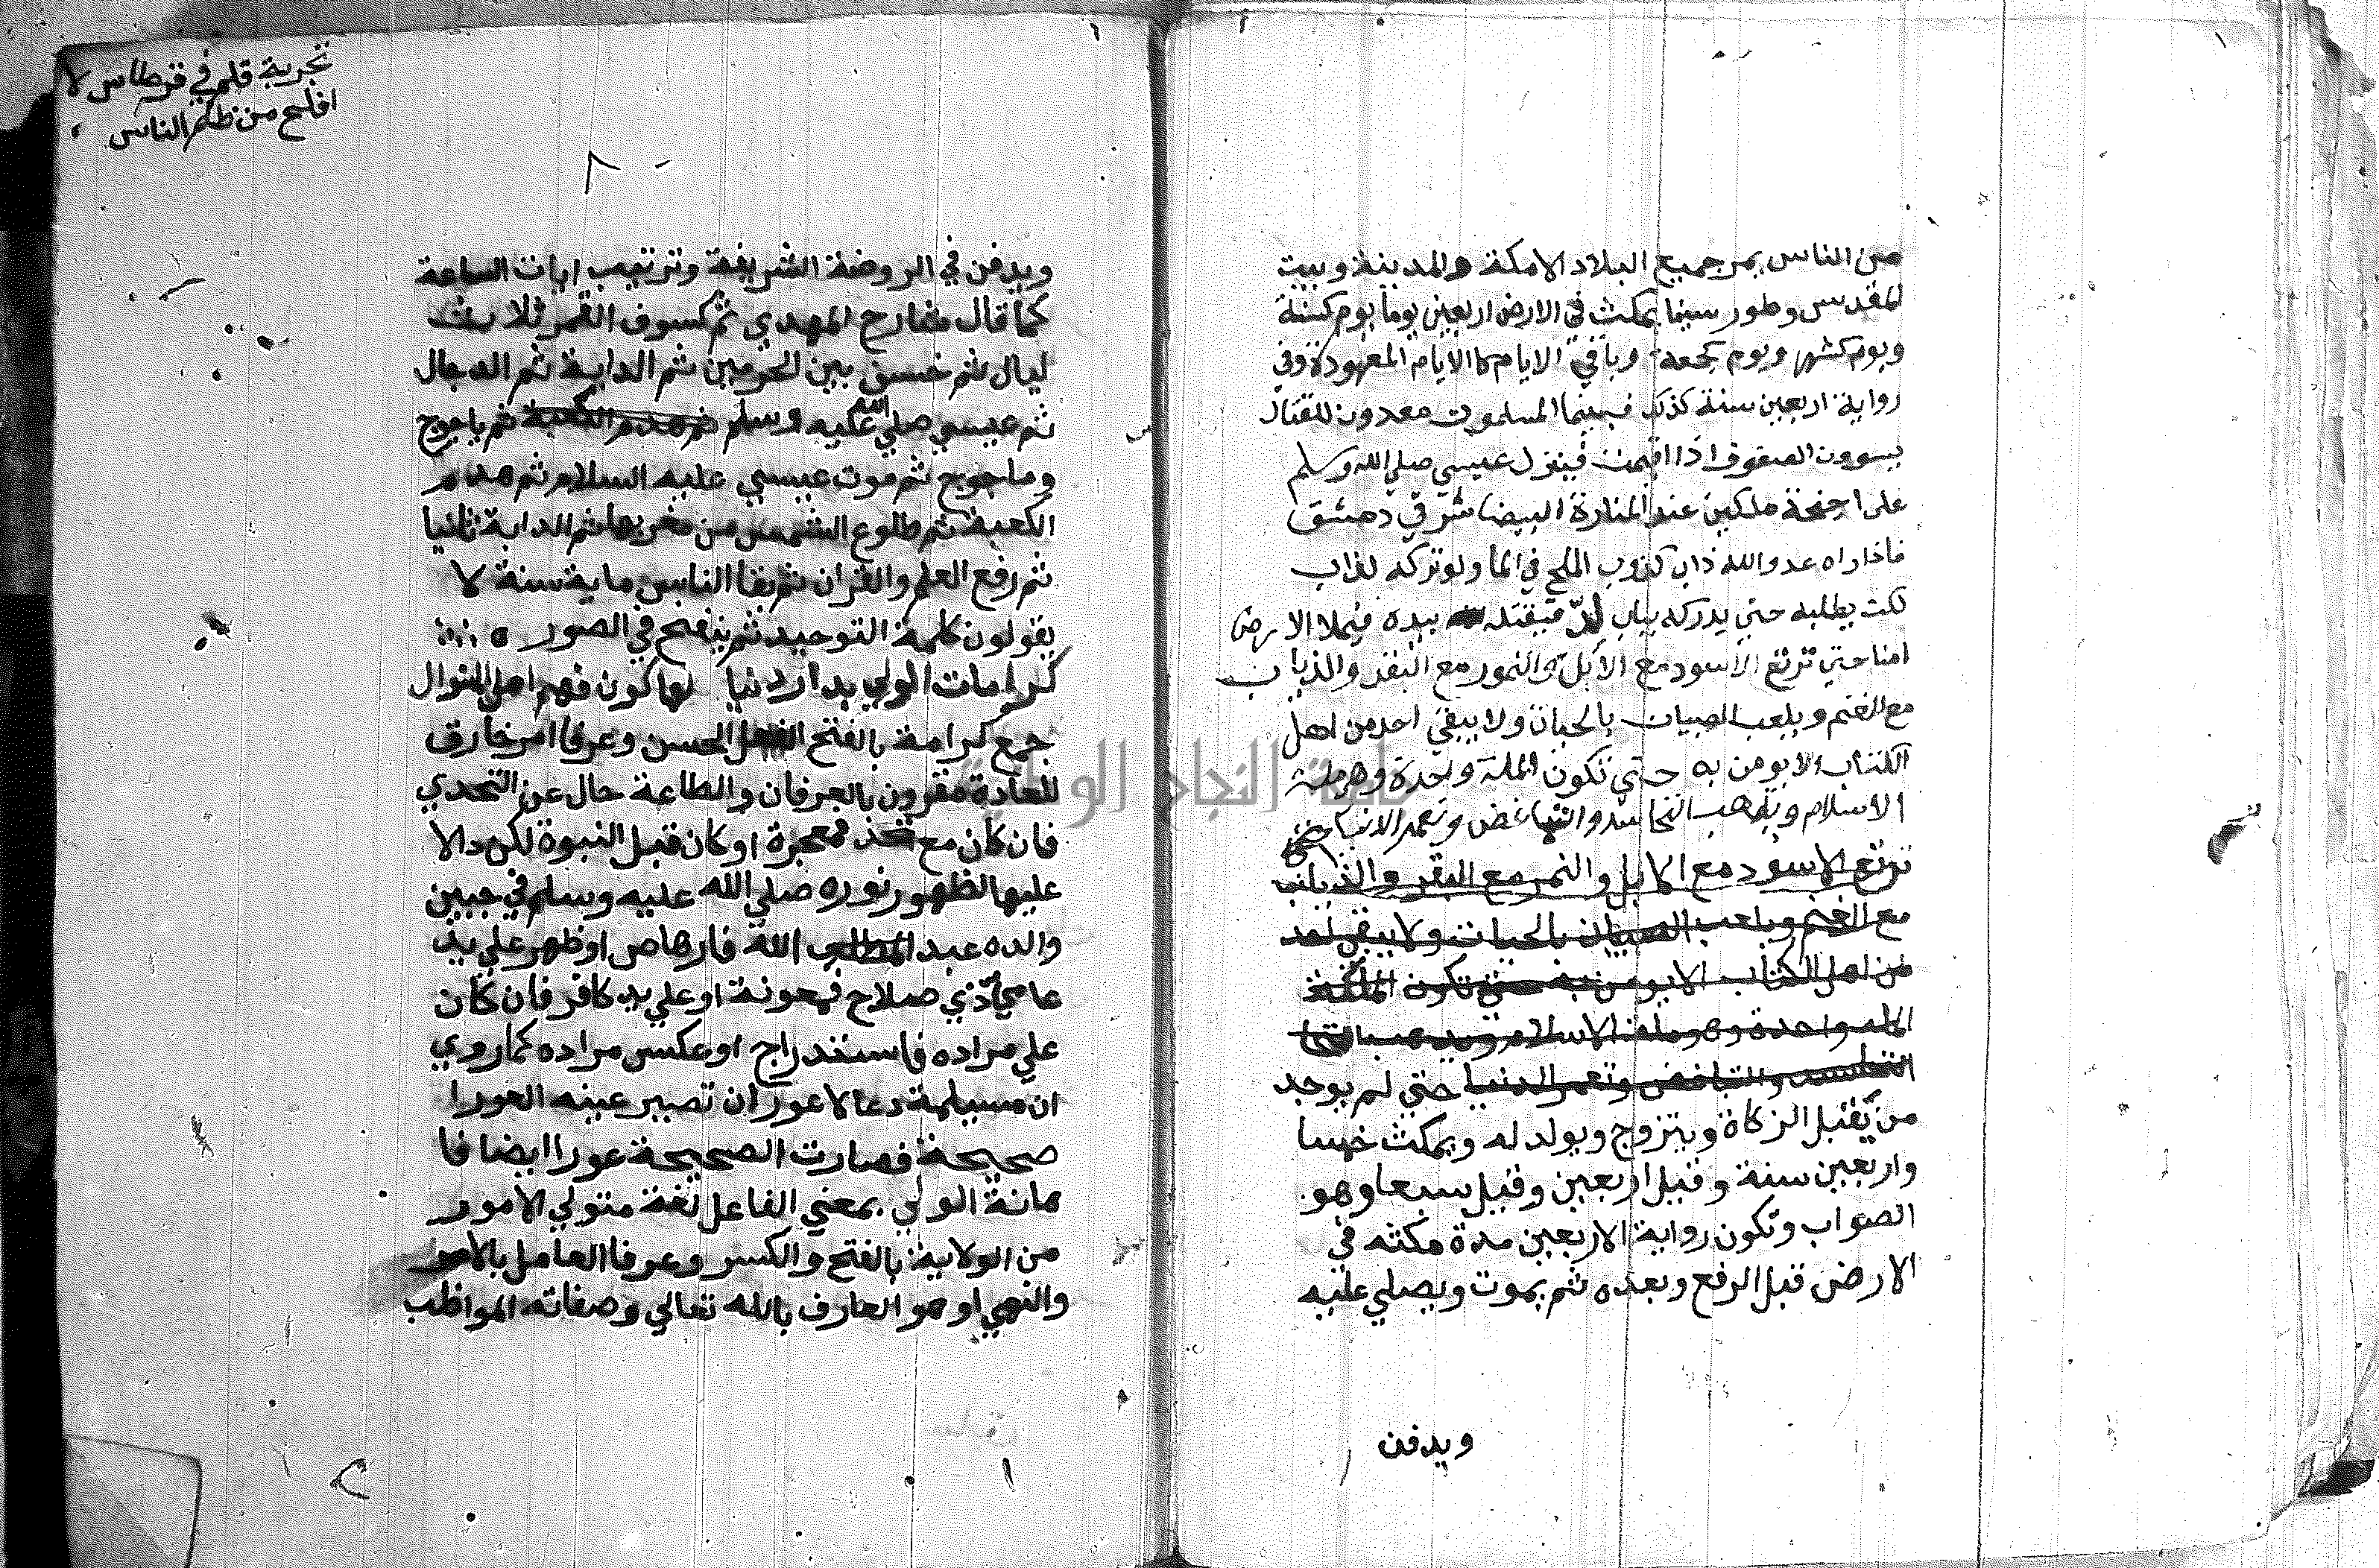 من الناس يمر جميع البلاد الامكة والمدينة وبيت
المقدس وطور سينا يمكث في الارض اربعين يوما يوم كسنة
ويوم كشهر ويوم كجمعة وباقي الايام كالايام المعهودة وفي
رواية اربعين سنة كذلك فبينما المسلمون معدون للقتال
يسوون الصفوف اذا اقيمت فينزل عيسي صلي الله وسلم
على اجنحة ملكين عند المنارة البيضا شرقي دمشق
فاذا راه عدو الله ذاب كذوب الملح في الما ولو تركه لذاب
لكن يطلبه حتي يدركه بباب لد فيقتله بيده فيملا الارض
امنا حتي ترتع الاسود مع الابل والنمور مع البقر والذياب
مع الغنم ويلعب الصبيان بالحيات ولا يبقي احد من اهل
الكتاب الا يومن به حتي تكون الملة واحدة وهي ملة
الاسلام ويذهب التحاسد والتباغض وتعمر الدنيا
ترتع الاسود مع الابل والنمر مع البقر والذياب
مع الغنم ويلعب الصبيان بالحيات ولا يبقي احد
من اهل الكتاب الا يومن به حتي تكون الملة
المله واحدة وهو ملة الاسلام ويذهب التحا
التحاسد والتباغض وتعمر الدنيا حتي لم يوجد
من يقبل الزكاة ويتزوج ويولد له ويمكث خمسا
واربعين سنة وقيل اربعين وقيل سبعا وهو
الصواب وتكون رواية الاربعين مدة مكثه في
الارض قبل الرفع وبعده ثم يموت ويصلي عليه
ويدفن
تجربة قلم في قرطاس لا
افلح من ظلم الناس
٨
ويدفن في الروضة الشريفة وترتيب ايات الساعة
كما قال شارح المهدي ثم كسوف القمر ثلاث
ليال ثم خسف بين الحرمين ثم الدابة ثم الدجال
ثم عيسي صلي الله عليه وسلم ثم هدم الكعبة ثم ياجوج
وماجوج ثم موت عيسي عليه السلام ثم هدم
الكعبة ثم طلوع الشمس من مغربها ثم الدابة ثانيا
ثم رفع العلم والقران ثم بقا الناس ماية سنة لا
يقولون كلمة التوحيد ثم ينفخ في الصور
كرامات الولي بدار دنيا لها كون فهم اهل النوال
جمع كرامة بالفتح الفعل الحسن وعرفا امر خارق
للعادة مقرون بالعرفان والطاعة خال عن التحدي
فان كان مع تحد فمعجزة او كان قبل النبوة لكن دالا
عليها لظهور نوره صلي الله عليه وسلم في جبين
والده عبد المطلب الله فارهاص او ظهر علي يد
عامي ذي صلاح فمعونة او علي يد كافر فان كان
علي مراده فاستدراج او عكس مراده كما روي
ان مسيلمة دعا لاعور ان تصير عينه العورا
صحيحة فصارت الصحيحة عورا ايضا فا
هانة الولي بمعني الفاعل لغة متولي الامور
من الولاية بالفتح والكسر وعرفا العامل بالامر
والنهي او هو العارف بالله تعالي وصفاته المواظب